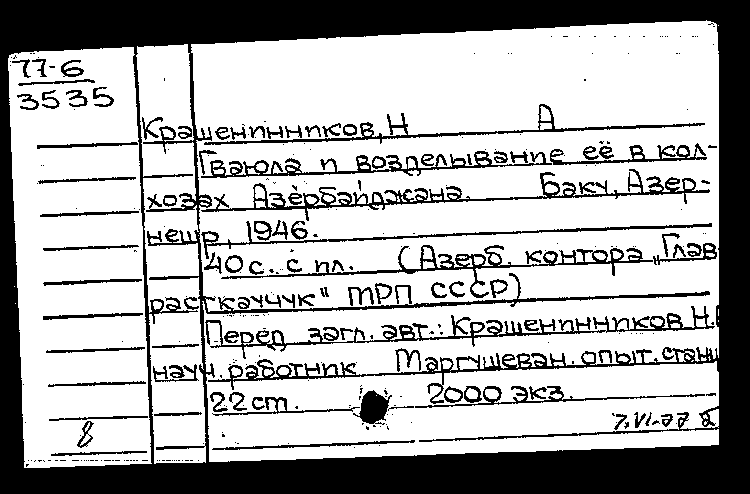 77-6
3535
Крашенинников, Н А
Гваюла и возделывание её в кол-
хозах Азербайджана. Баку, Азер-
нешр, 1946.
40 с. с ил. (Азерб. контора „Глав
расткаучук" МРП СССР)
Перед загл. авт.: Крашенинников Н.
науч. работник Маргушеван. опыт. станц
22 см. 2000 экз.
8 7.VI-77